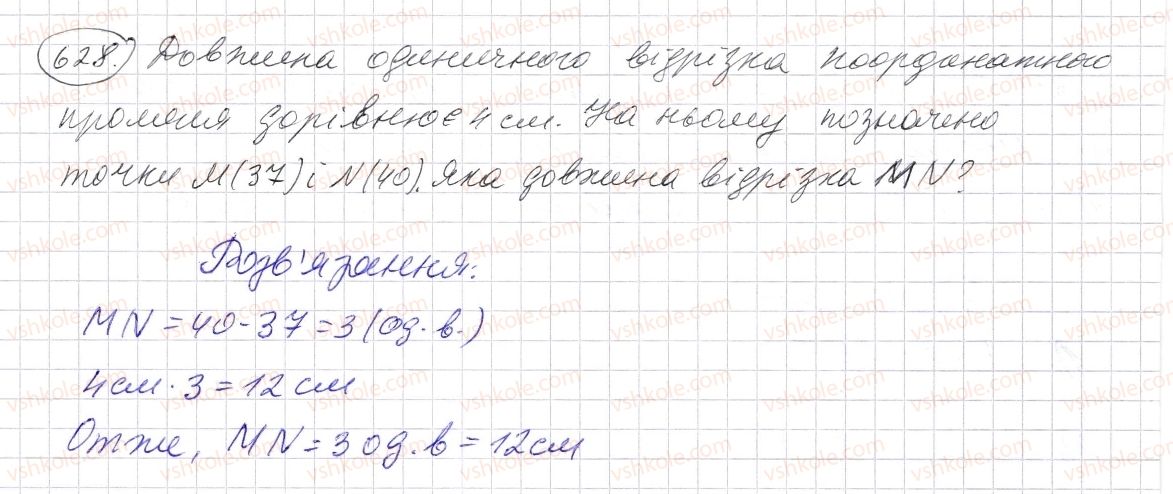 628.) Довжина одиничного відрізка координатного
променя дорівнює 4 см. На ньому позначено
точки M(37) і N(40). Яка довжина відрізка MN?
Розв'язання:
MN = 40 - 37 = 3 (од. в.)
4 см · 3 = 12 см
Отже, MN = 3 од. в = 12 см